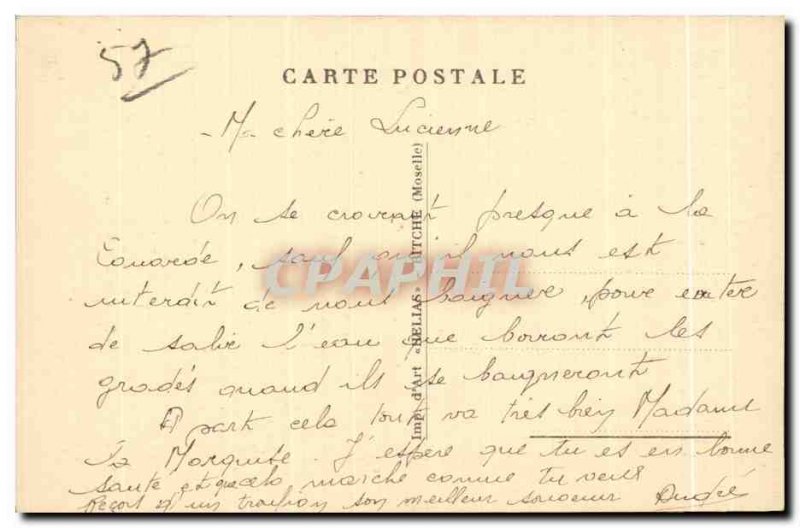 57
CARTE POSTALE
Ma chère Lucienne
On se croirait presque à la
, sauf qu'il nous est
interdit de nous baigner, pour eviter
de salir l'eau que boiront les
gradés quand ils se baigneront
A part cela tout va très bien Madame
La Marquise. J'espère que tu es en bonne
santé et que cela marche comme tu veux
Reçois d'un troufion son meilleur souvenir André
Imp. d'Art «HELIAS» BITCHE (Moselle)
CPAPHIL